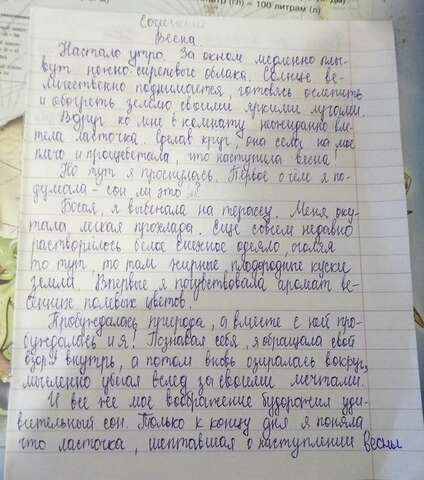 (гл) = 100 литрам (л)
Сочинение
Весна.
Настало утро. За окном медленно плы-
вут нежно-сиреневые облака. Солнце ве-
личественно поднимается, готовясь ослепить
и обогреть землю своими яркими лучами.
Вдруг ко мне в комнату неожиданно вле-
тела ласточка. Сделав круг, она села на мое
плечо и прощебетала, что наступила весна!
Но тут я проснулась. Первое о чем я по-
думала - сон ли это?
Босая, я выбежала на террасу. Меня оку-
тала легкая прохлада. Еще совсем недавно
растворилось белое снежное одеяло, оголяя
то тут, то там жирные, плодородные куски
земли. Впервые я почувствовала аромат ве-
сенних полевых цветов.
Пробуждалась природа, а вместе с ней про-
буждалась и я! Познавая себя, я обращала свой
взор внутрь, а потом вновь озиралась вокруг,
мысленно убегая вслед за своими мечтами.
И все же мое воображение будоражил уди-
вительный сон. Только к концу дня я поняла
что ласточка, шептавшая о наступлении весны